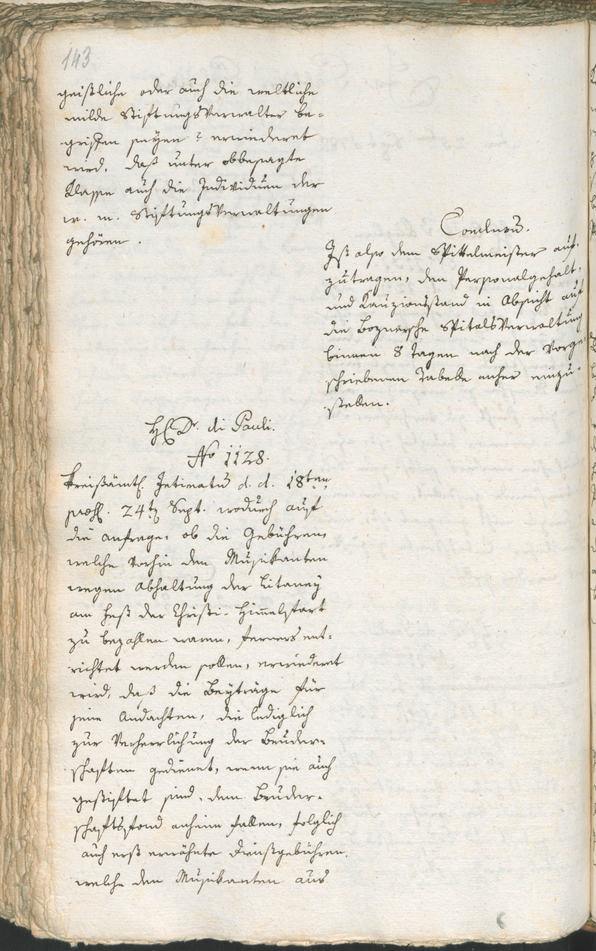 143
geistliche oder auch die weltliche
milde Stiftungsverwalter be-
griffen seyen? erwiederet
wird, daß unter obbesagte
Klasse auch die Individuen der
w. m. Stiftungsverwaltungen
gehören.
Conclusu.
Ist also dem Spittelmeister auf-
zutragen, den Personalgehalt,
und Kauzionsstand in Absicht auf
die Boznersche Spitalsverwaltung
binnen 8 Tagen nach der vorge-
schriebenen Tabelle anher einzu-
stellen.
H. Dr. di Pauli.
No 1128.
Kreißämtl. Intimatum d. d. 18ten
praes. 24ten Sept. wodurch auf
die Anfrage, ob die Gebühren,
welche vorhin den Musikanten
wegen Abhaltung der Litaney
am Fest der Christi-Himmelfart
zu bezahlen waren, ferners ent-
richtet werden sollen, erwiederet
wird, daß die Beyträge für
jene Andachten, die lediglich
zur Verherrlichung der Bruder-
schaften gedienet, wenn sie auch
gestiftet sind, dem Bruder-
schaftsfond anheim fallen, folglich
auch erst erwähnte Dienstgebühren,
welche den Musikanten aus
6